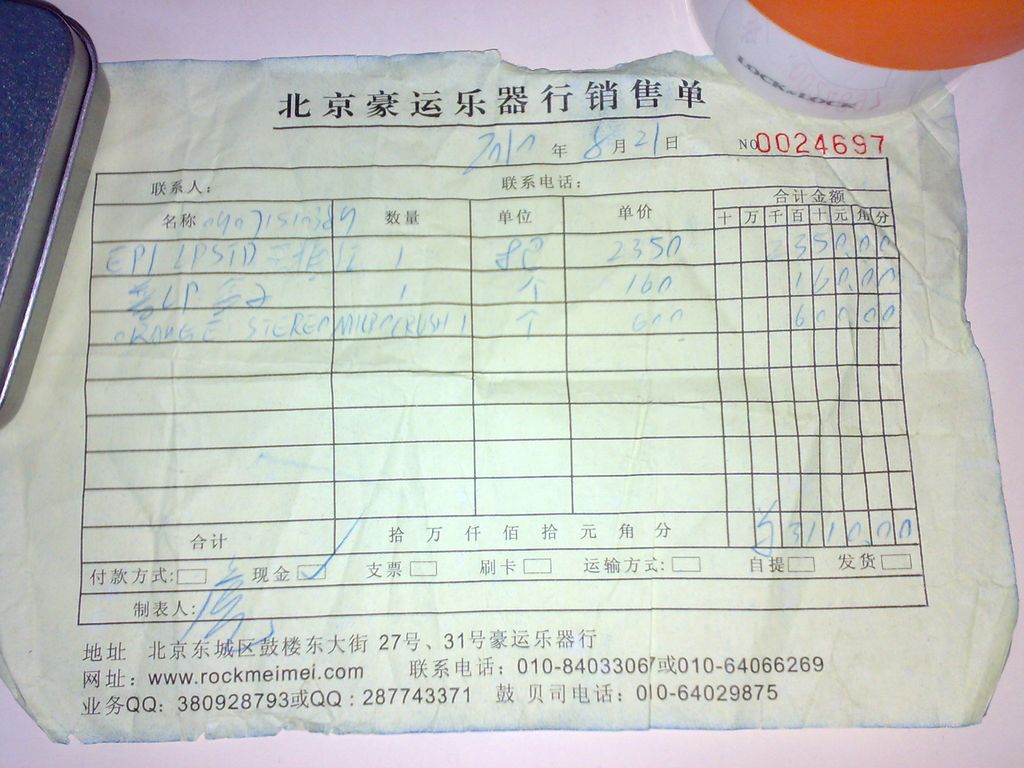 LOCK&LOCK
北京豪运乐器行销售单
2010 年 8 月 21 日 NO 0024697
联系人： 联系电话：
名称 0907151038 数量 单位 单价 合计金额
十 万 千 百 十 元 角 分
EPI LPSTD 1 把 2350 2350.00
LP 盒子 1 个 160 160.00
ORANGE STEREO MICRO CRUSH 1 个 600 600.00
合计 拾 万 仟 佰 拾 元 角 分 3110.00
付款方式: 现金 支票 刷卡 运输方式: 自提 发货
制表人:
地址 北京东城区鼓楼东大街 27号、31号豪运乐器行
网址：www.rockmeimei.com 联系电话：010-84033067或010-64066269
业务QQ：380928793或QQ：287743371 鼓 贝司电话：010-64029875